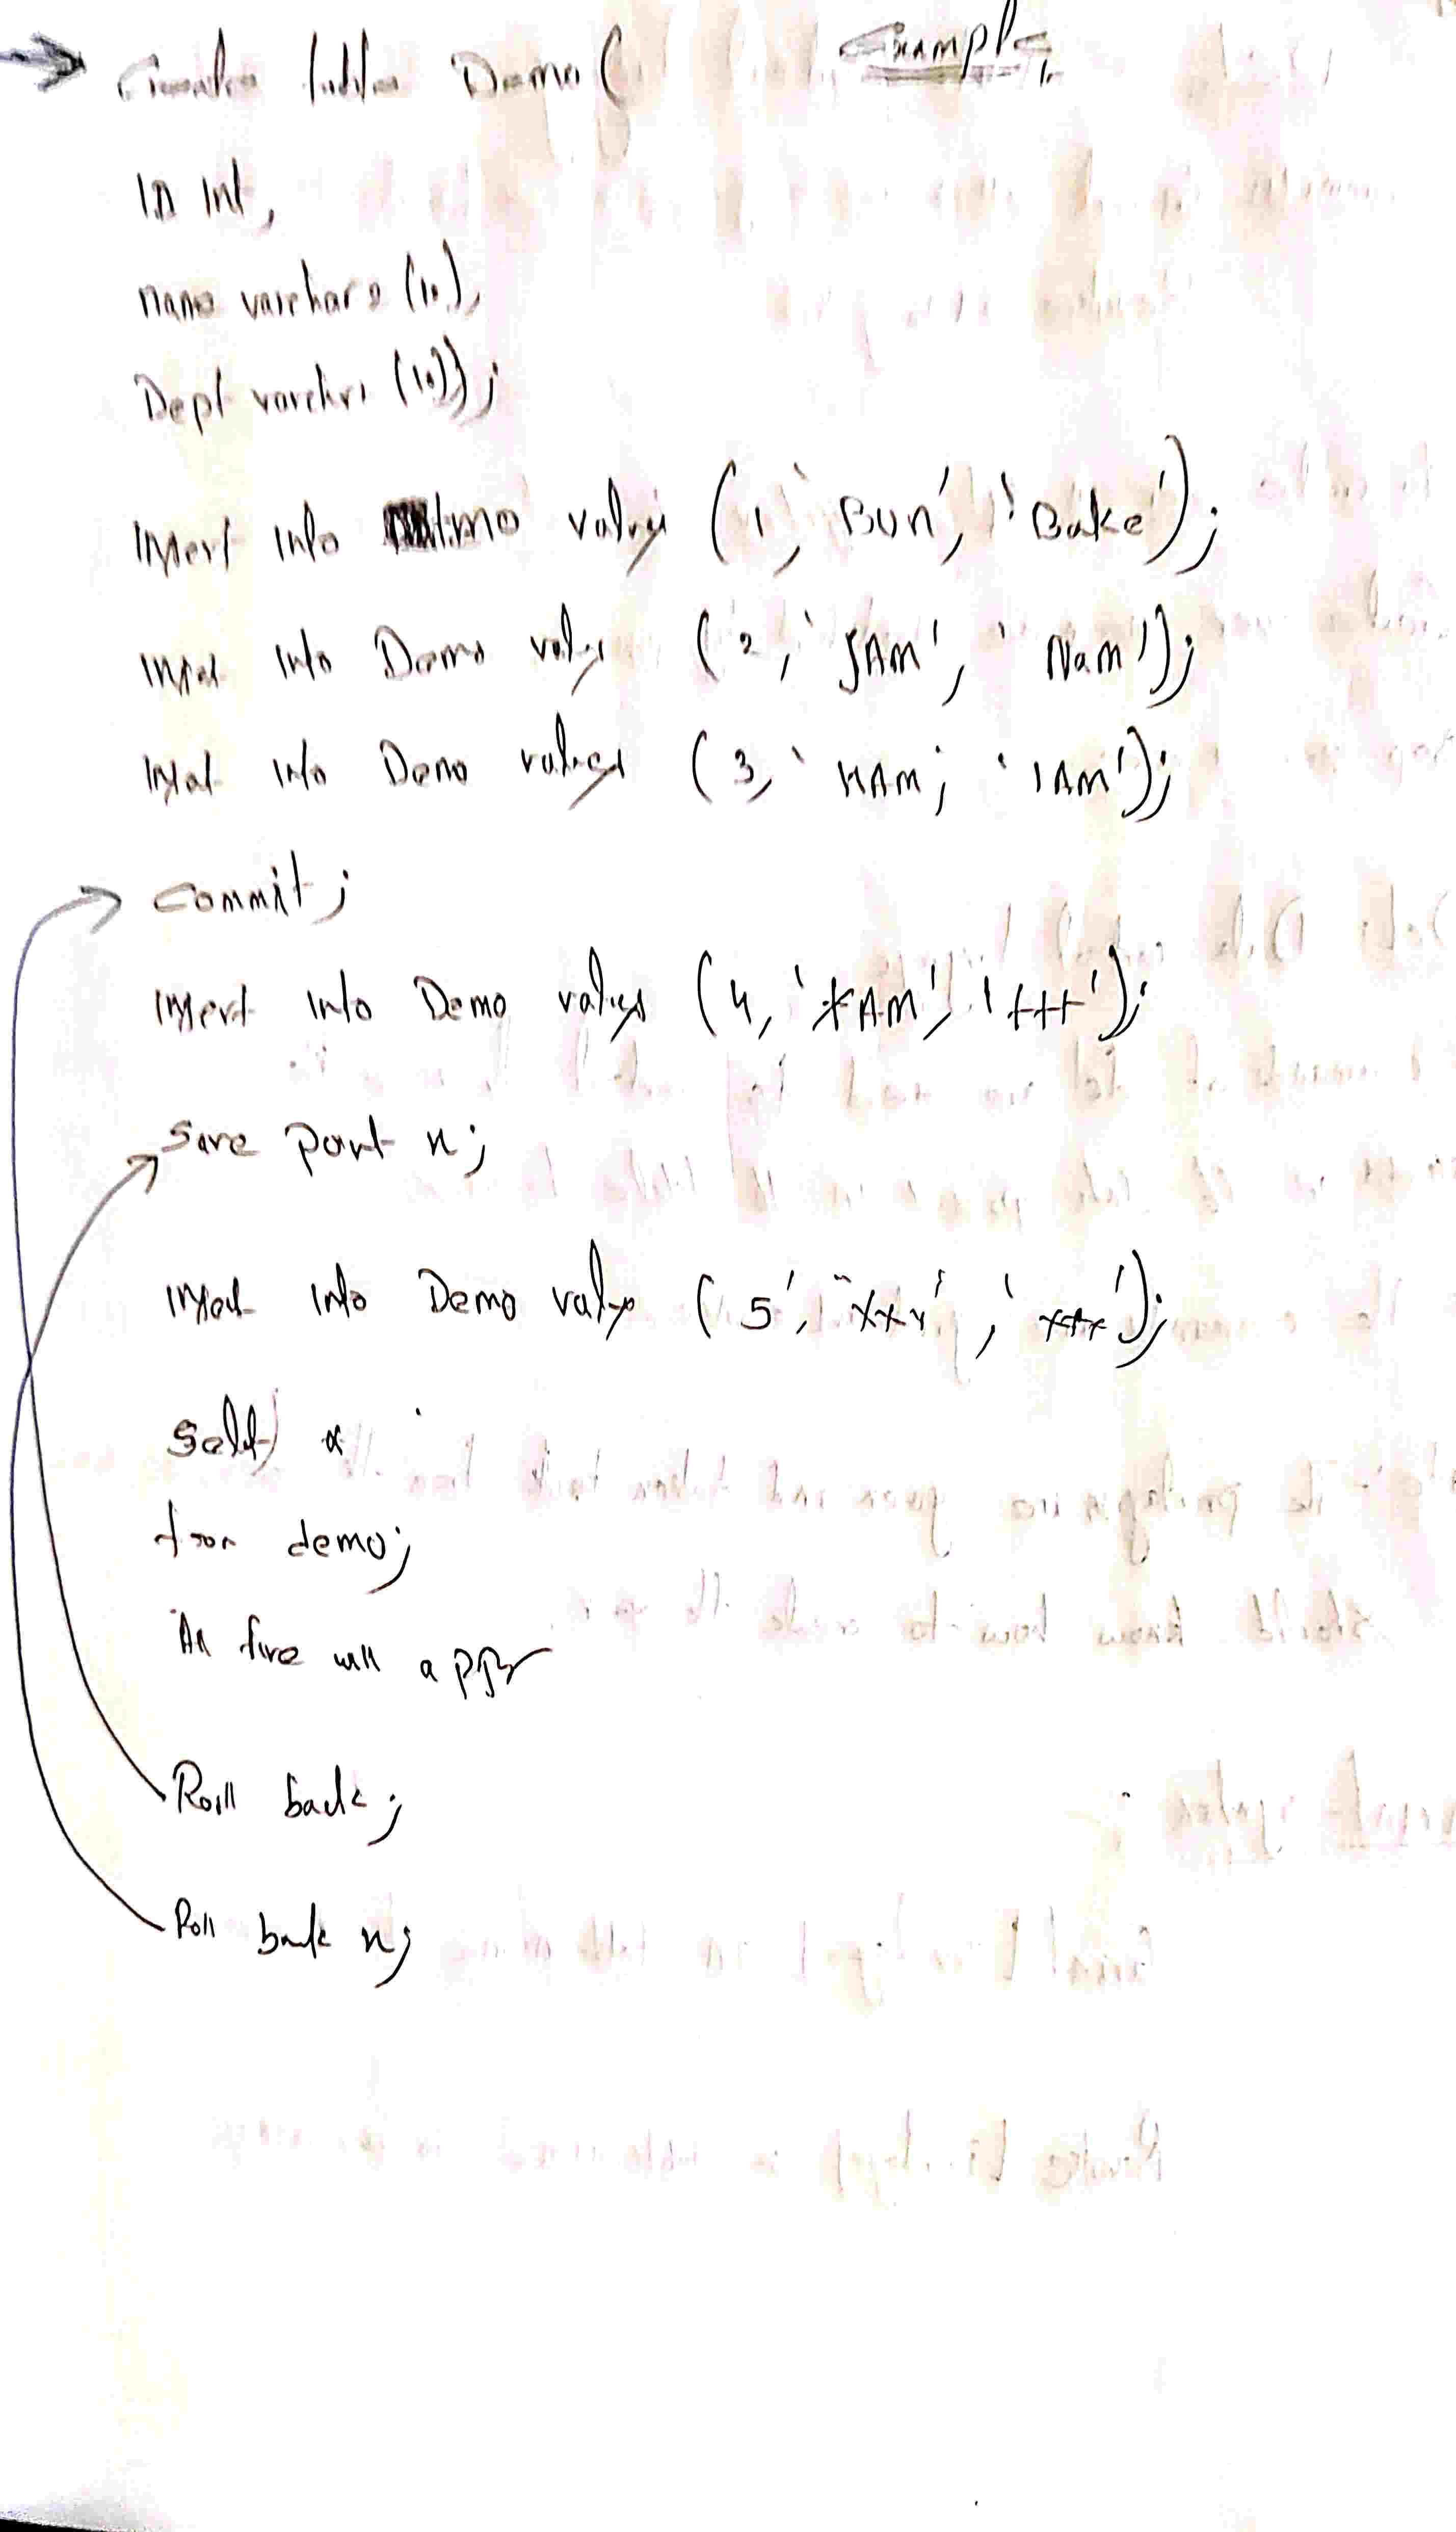 Example
Create table Demo (
ID Int,
name varchar2 (10),
Dept varchar (10));
Insert into values (1, 'Bun', 'Bake');
Insert into Demo values (2, 'JAM', 'Nam');
Insert into Demo values (3, 'HAM', 'IAM');
Commit;
Insert into Demo values (4, 'XAM', 'ttt');
Save point x;
Insert into Demo values (5', 'xxx', 'xxx');
Select *
from demo;
All five will appr
Roll back;
Roll back x;